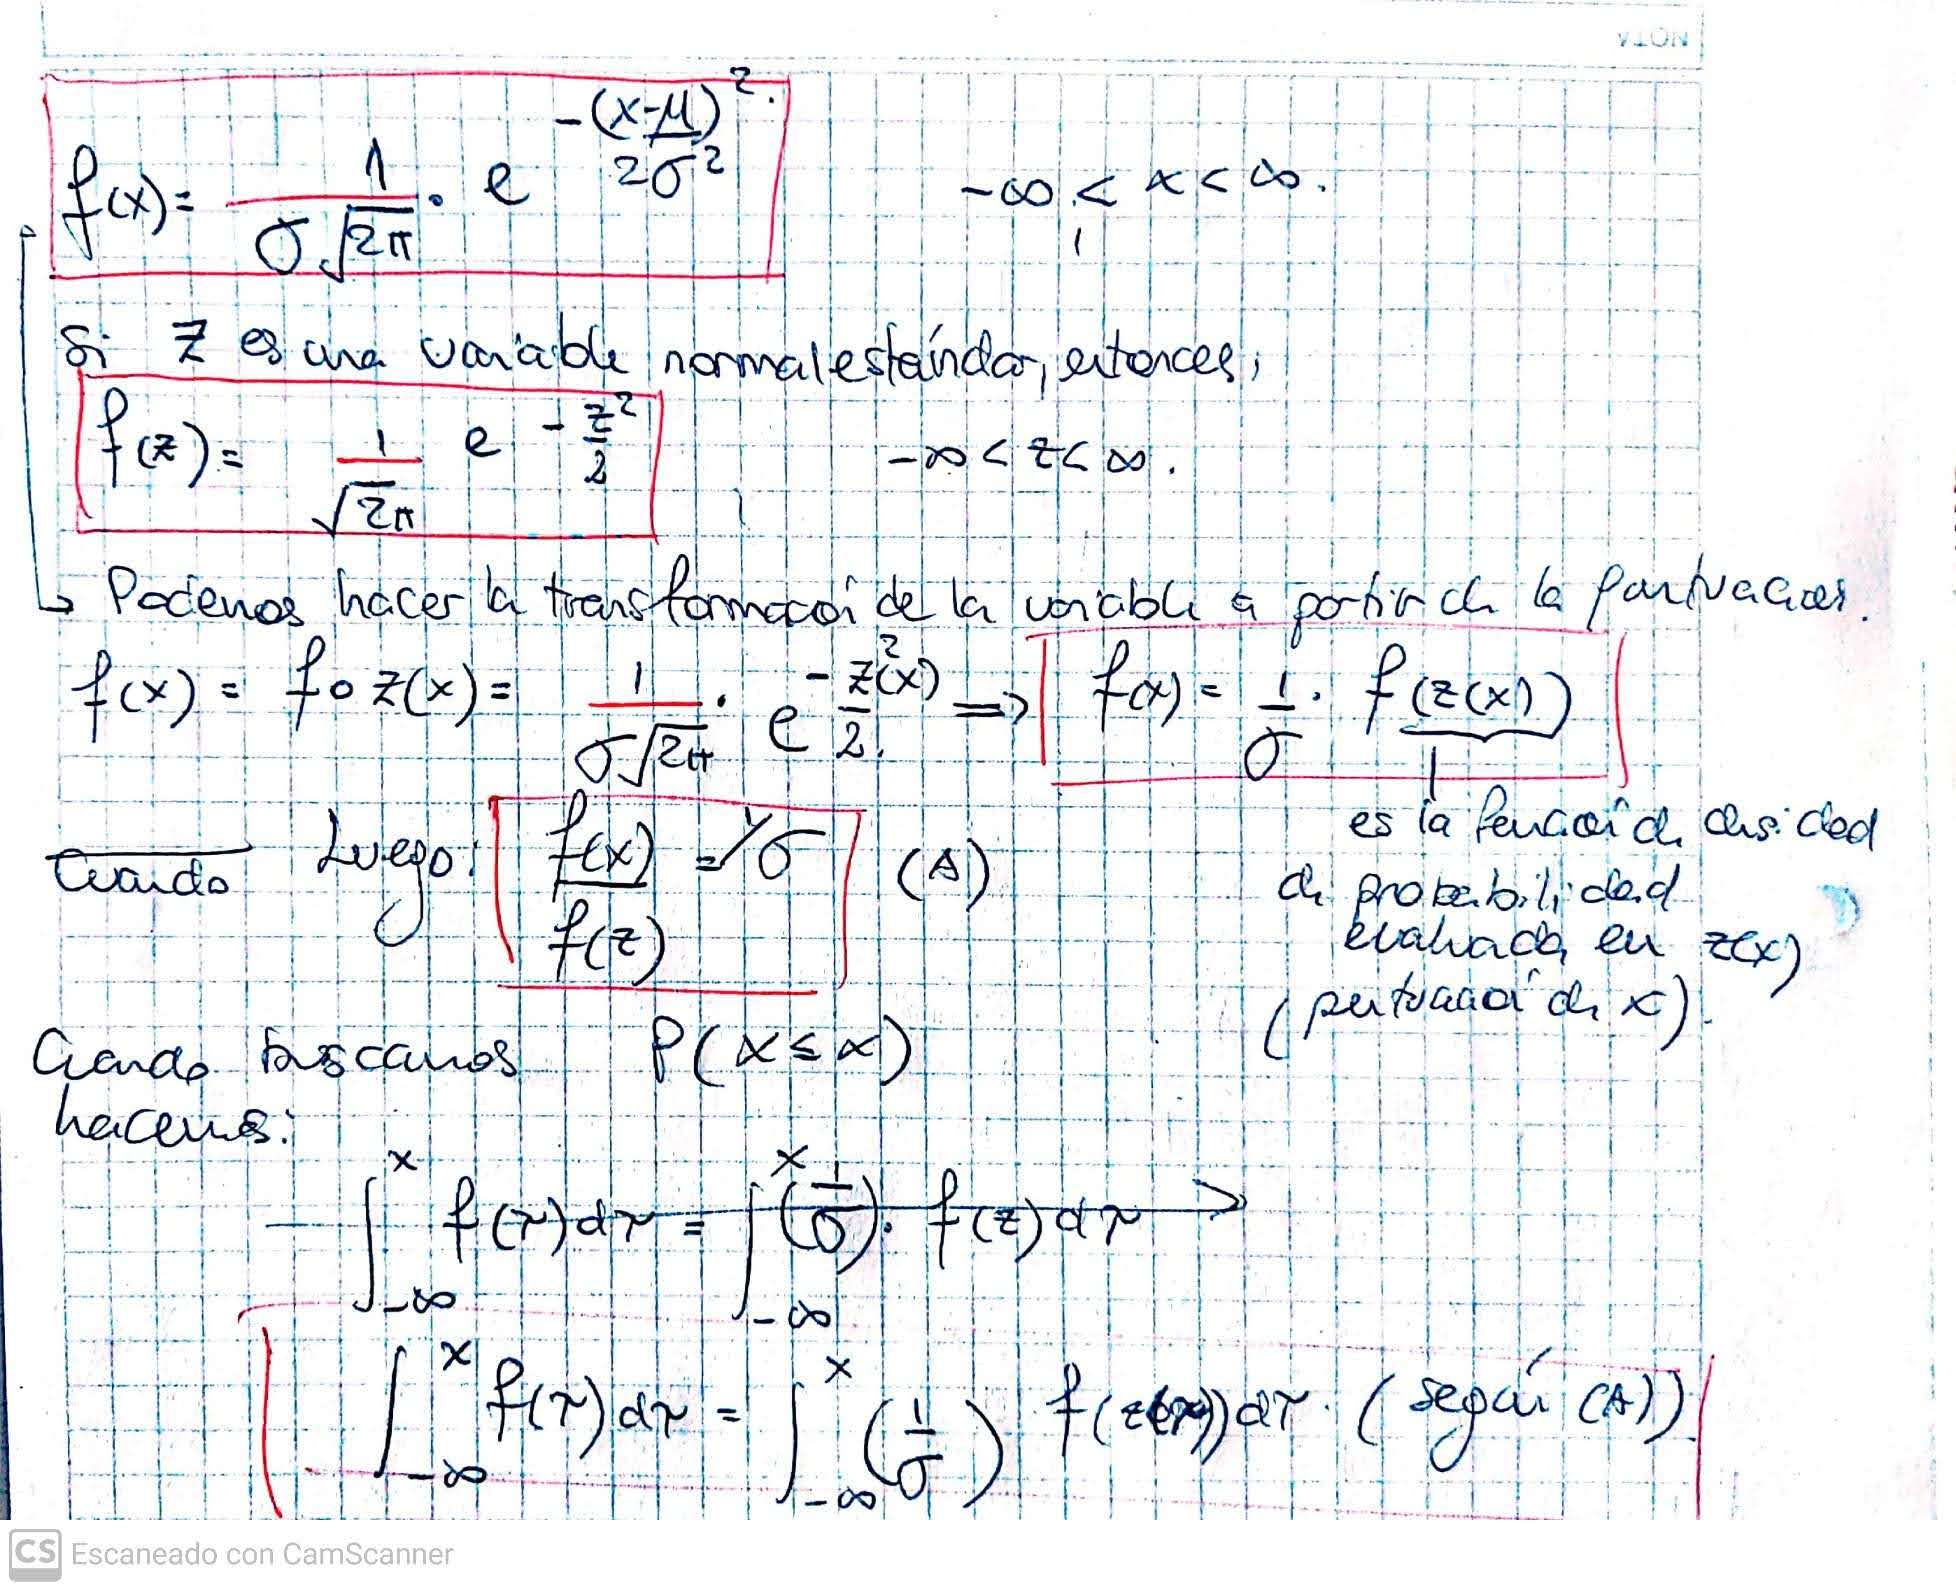 NOTA
f(x) = 1/(σ√(2π)) · e^(-(x-μ)²/(2σ²)) -∞ < x < ∞.
Si Z es una variable normal estándar, entonces,
f(z) = 1/√(2π) e^(-z²/2) -∞ < z < ∞.
Podemos hacer la transformación de la variable a partir de la puntuación.
f(x) = f o z(x) = 1/(σ√(2π)) · e^(-z²(x)/2) ⟹ f(x) = 1/σ · f(z(x))
Cuando Luego: f(x)/f(z) = 1/σ (A)
es la función de densidad
de probabilidad
evaluada en z(x)
(puntuación de x).
Cuando buscamos P(X ≤ x)
hacemos:
∫_{-∞}^{x} f(τ)dτ = ∫_{-∞}^{x} (1/σ) · f(z)dτ
∫_{-∞}^{x} f(τ)dτ = ∫_{-∞}^{x} (1/σ) f(z(τ))dτ. (según (A))
CS Escaneado con CamScanner